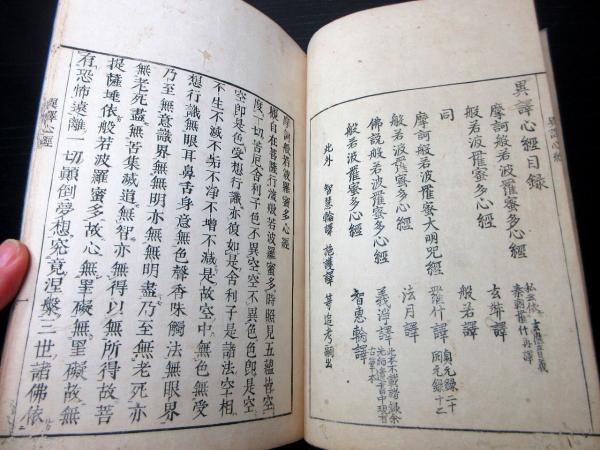 異譯心經目録
摩訶般若波羅蜜多心經 玄奘譯
般若波羅蜜多心經 般若譯
同
摩訶般若波羅蜜大明咒經 羅什譯
般若波羅蜜多心經 法月譯
佛説般若波羅蜜多心經 義淨譯
般若波羅蜜多心經 智惠輪譯
此外 智慧輪譯 施護譯 等追考嗣出
摩訶般若波羅蜜多心經
觀自在菩薩行深般若波羅蜜多時照見五蘊皆空
度一切苦厄舍利子色不異空空不異色色即是
空即是色受想行識亦復如是舍利子是諸法空相
不生不滅不垢不淨不增不減是故空中無色無受
想行識無眼耳鼻舌身意無色聲香味觸法無眼界
乃至無意識界無無明亦無無明盡乃至無老死亦
無老死盡無苦集滅道無智亦無得以無所得故菩
提薩埵依般若波羅蜜多故心無罣礙無罣礙故無
有恐怖遠離一切顛倒夢想究竟涅槃三世諸佛依
異譯心經